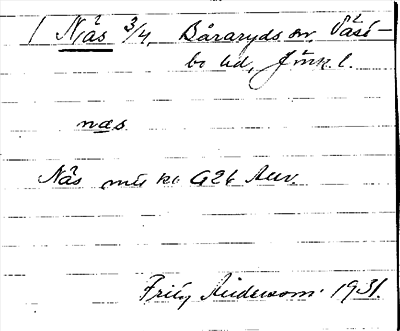 Näs 3/4, Båraryds sn. Västbo hd, Jönk. l.
näs
Näs mtl kr 926 Auv.
Fritz Anderson. 1931.